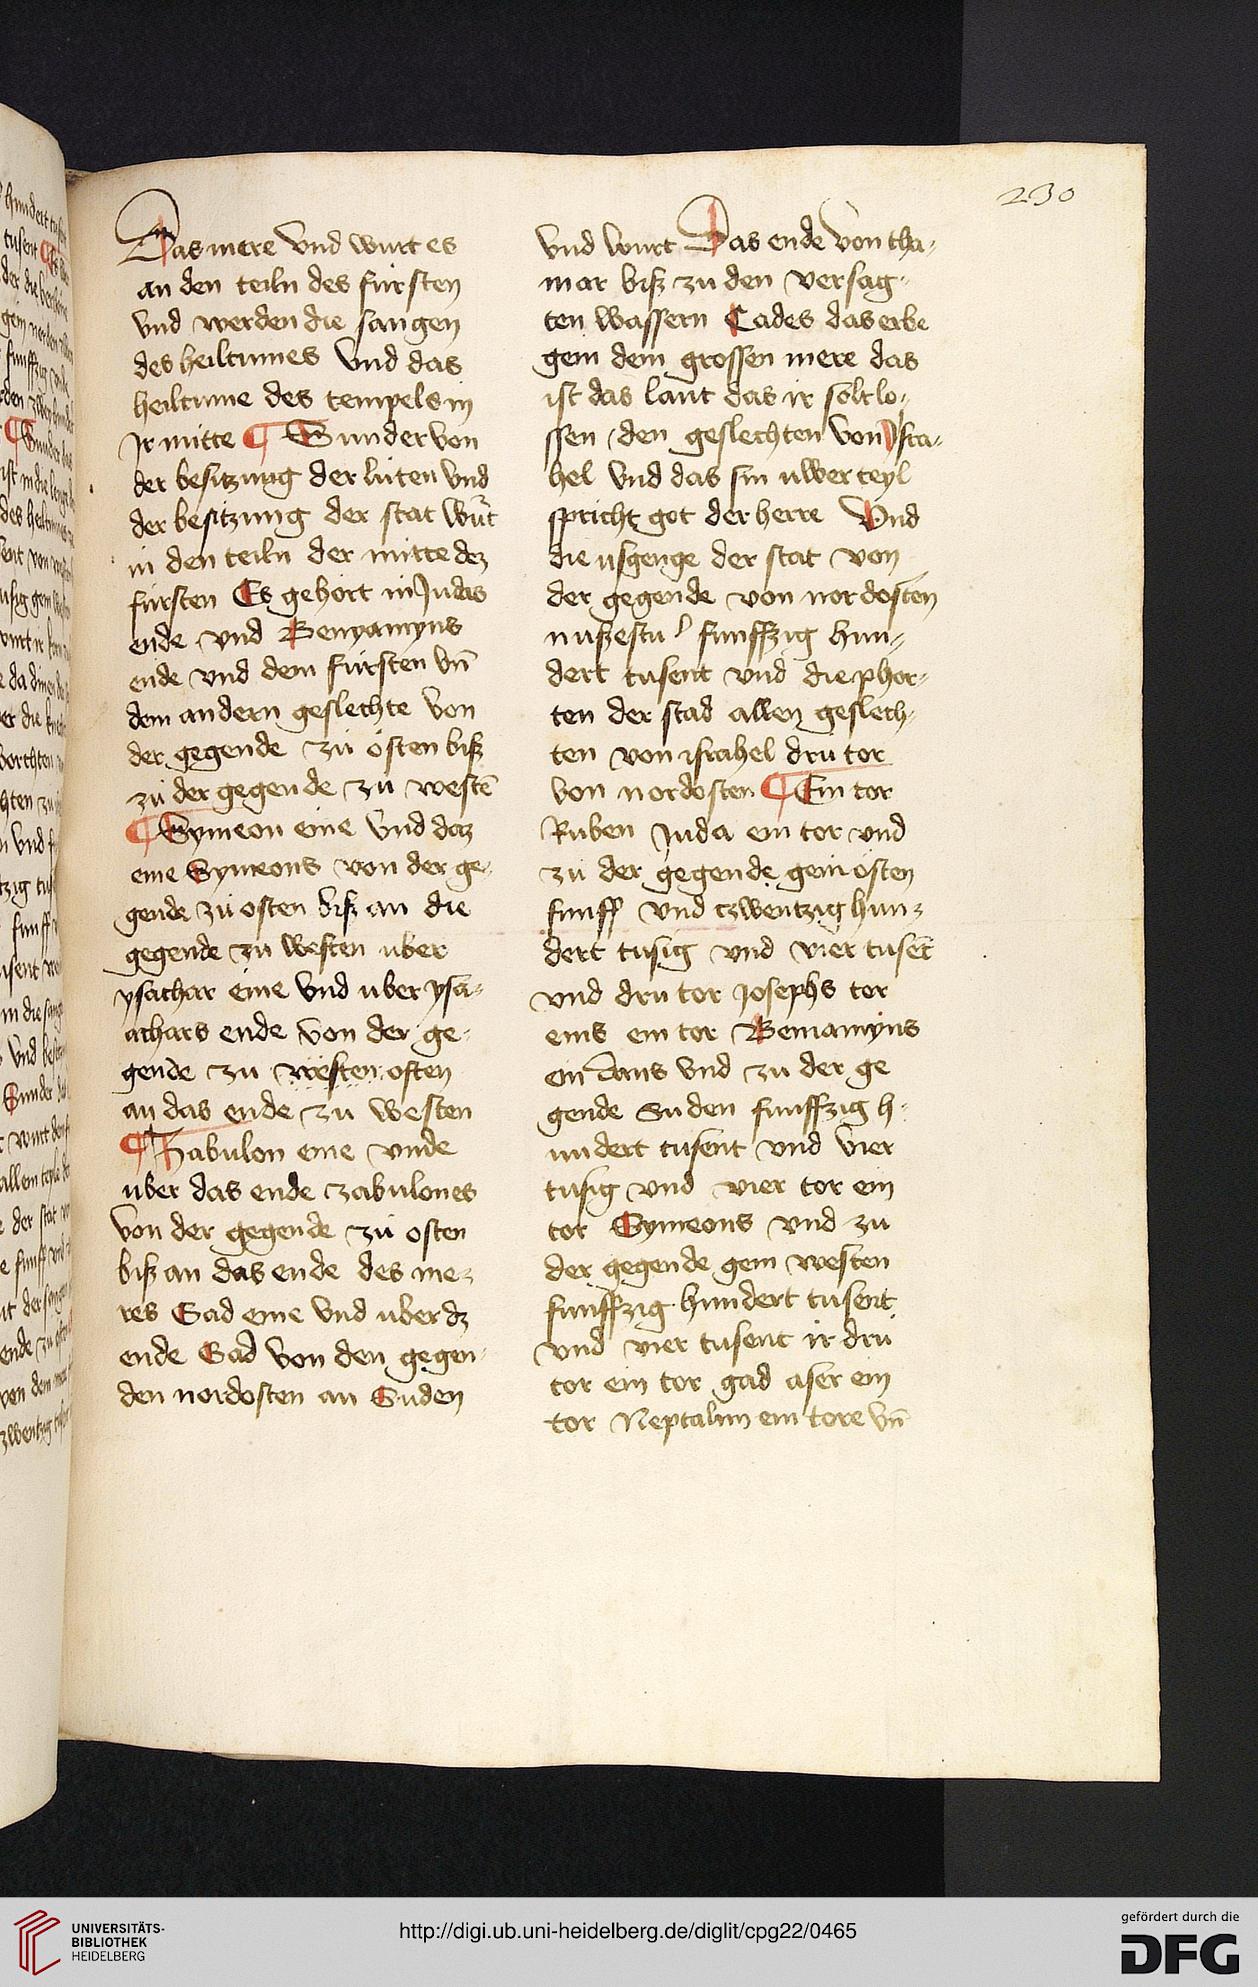 230
Das mere vnd wurt es
an den teiln des fursten
vnd werden die sangen
des heiltumes vnd das
heiltume des tempels in
Ir mitte ¶ Sunder von
der besitzung der luten vnd
der besitzung der stat wurt
in den teiln der mitte dez
fursten Es gehort in Judas
ende vnd Benyamyns
ende vnd dem fursten vn̄
dem andern geslechte von
der gegende zu osten biß
zu der gegende zu westē
¶ Symeon eine vnd daz
eine Symeons von der ge-
gende zu osten biß an die
gegende zu westen uber
ysachar eine vnd uber ysa-
achars ende von der ge-
gende zu westen osten
an das ende zu westen
¶ Zabulon eine vnde
uber das ende zabulones
von der gegende zu osten
biß an das ende des me-
res Gad eine vnd uber dz
ende Gad von den gegen-
den nordosten an Suden
vnd wurt Das ende von tha-
mar biß zu den versag-
ten wassern Cades das erbe
gein dem grossen mere das
ist das lant das ir solt lo-
ssen den geslechten von Isra-
hel vnd das sin uwer teyl
spricht got der herre Vnd
die usgenge der stat von
der gegende von nordosten
funffzig hun-
dert tusent vnd die phor-
ten der stad allen geslech-
ten von israhel dru tor
von nordosten ¶ Ein tor
Ruben Juda ein tor vnd
zu der gegende gein osten
funff vnd czwentzig hun-
dert tusig vnd vier tusēt
vnd dru tor Josephs tor
eins ein tor Beniamyns
ein Dans vnd zu der ge
gende Suden funffzig h-
undert tusent vnd vier
tusig vnd vier tor ein
tor Symeons vnd zu
der gegende gein westen
funffzig hundert tusent
vnd vier tusent ir dru
tor ein tor gad aser ein
tor Neptalim ein tore vn̄
UNIVERSITÄTS-
BIBLIOTHEK
HEIDELBERG
http://digi.ub.uni-heidelberg.de/diglit/cpg22/0465
gefördert durch die
DFG